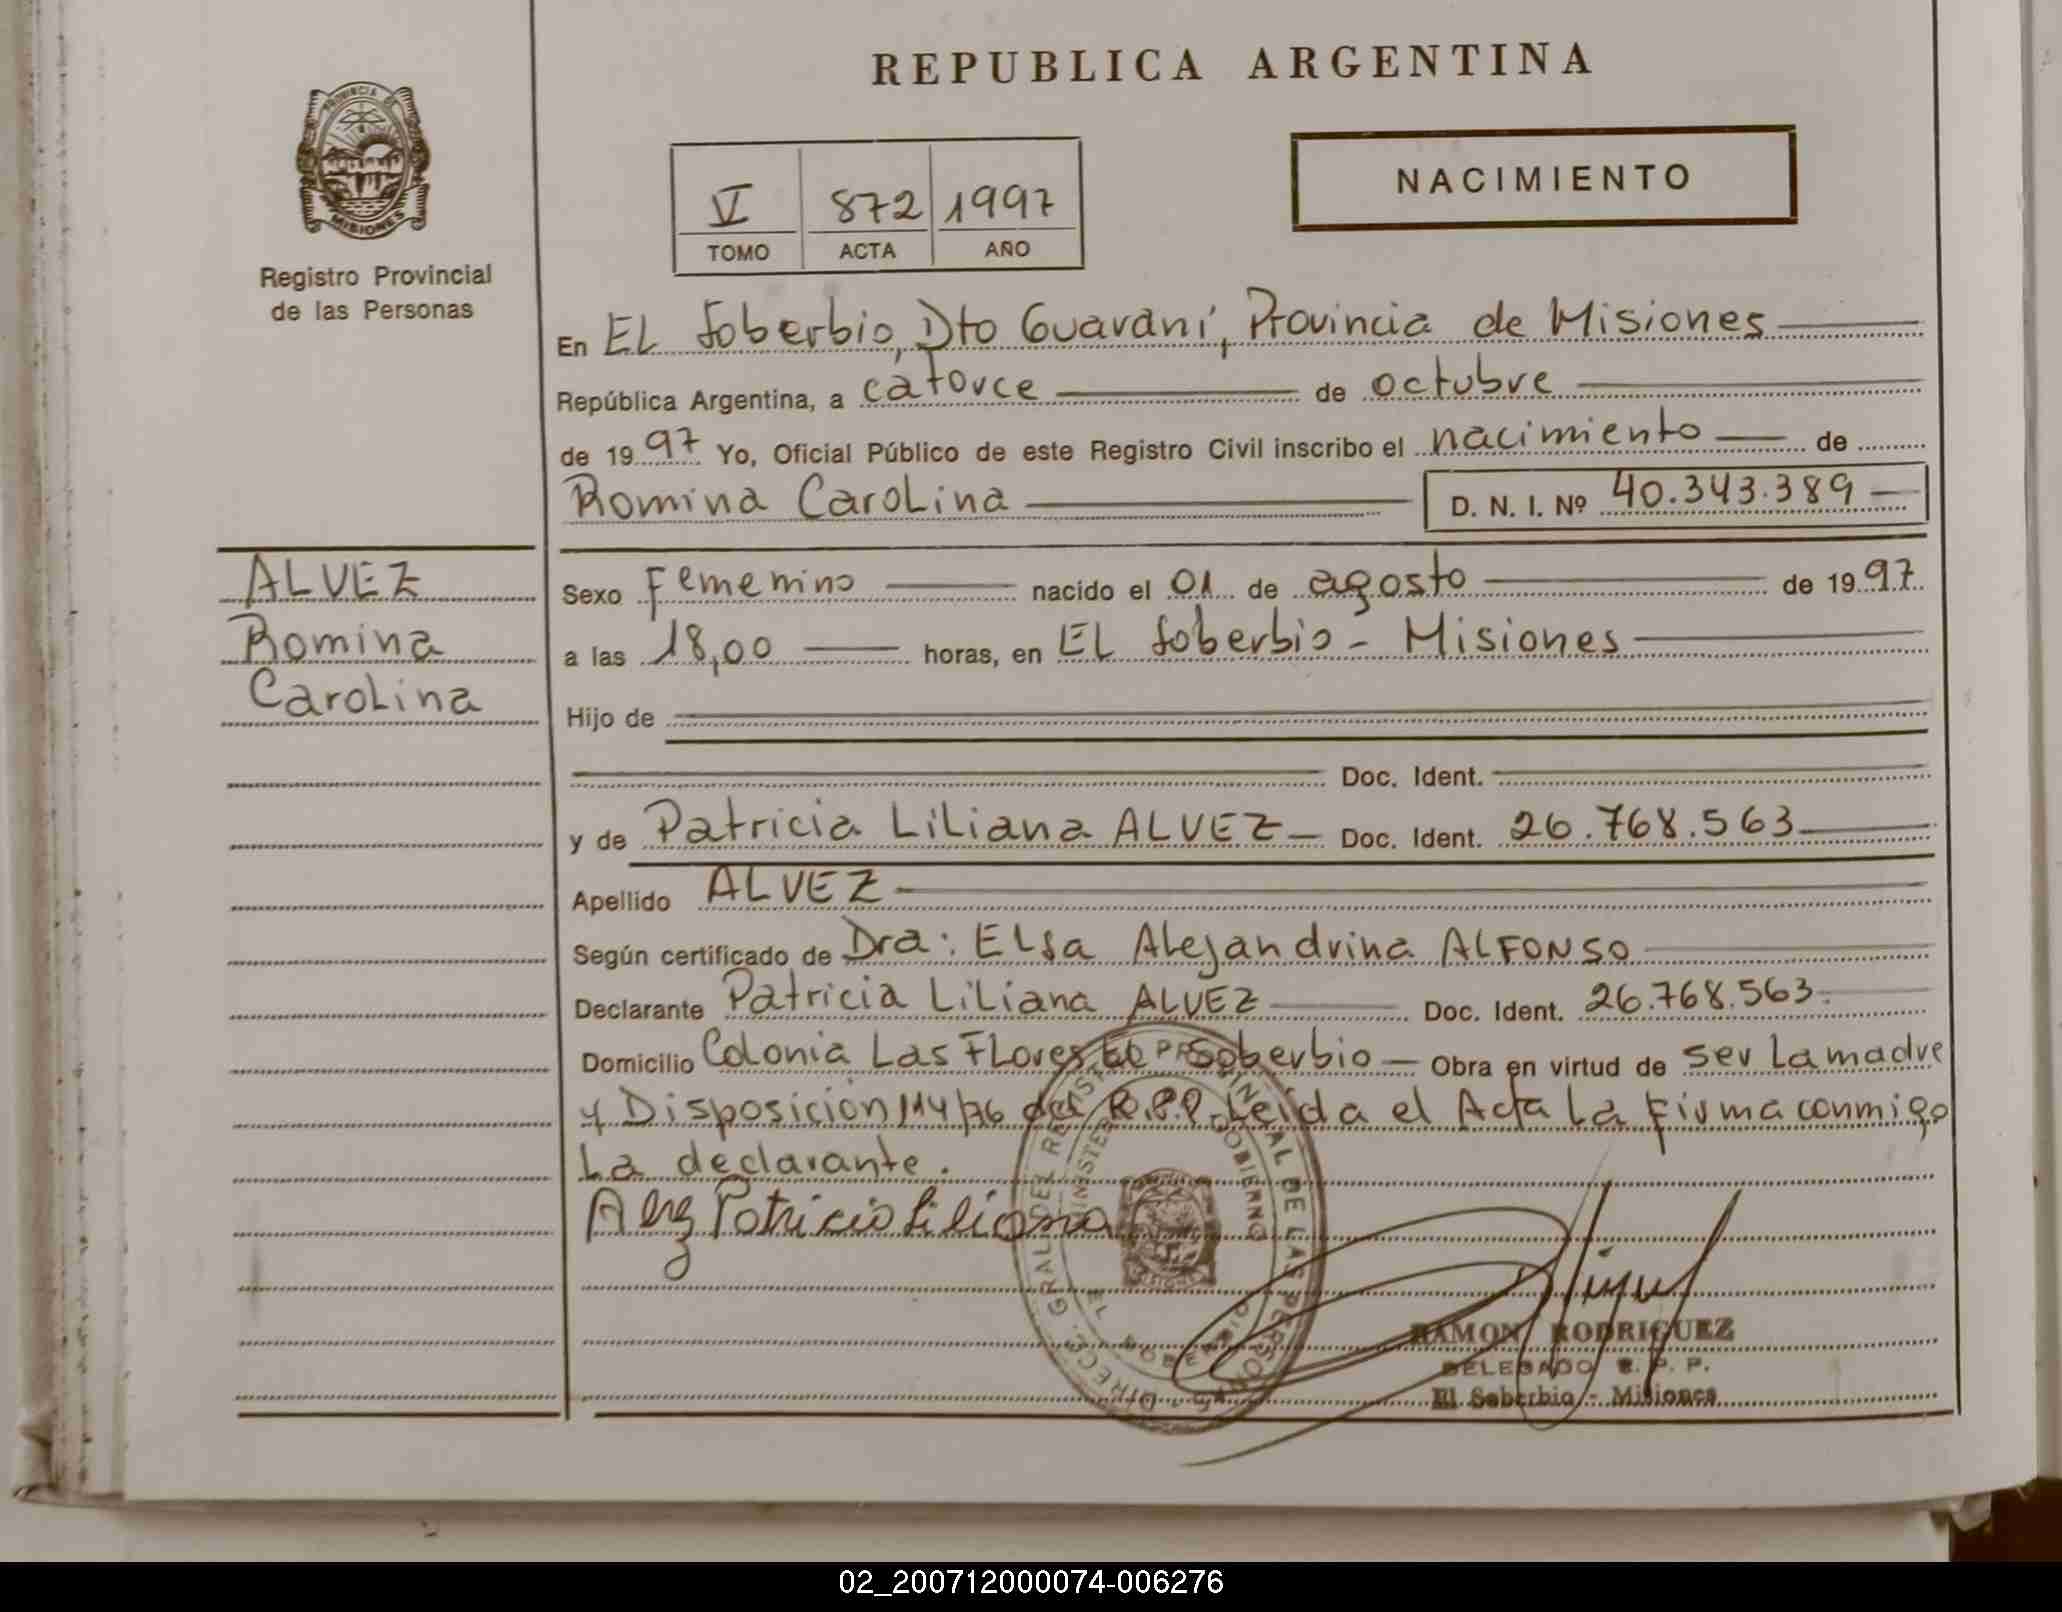 REPUBLICA ARGENTINA
PROVINCIA DE
MISIONES
Registro Provincial
de las Personas
V 872 1997
TOMO ACTA AÑO
NACIMIENTO
En EL Soberbio, Dto Guaraní, Provincia de Misiones
República Argentina, a catorce de octubre
de 1997 Yo, Oficial Público de este Registro Civil inscribo el nacimiento de
Romina Carolina D. N. I. Nº 40.343.389
ALVEZ
Romina
Carolina
Sexo Femenino nacido el 01 de agosto de 1997
a las 18,00 horas, en EL Soberbio - Misiones
Hijo de
Doc. Ident.
y de Patricia Liliana ALVEZ Doc. Ident. 26.768.563
Apellido ALVEZ
Según certificado de Dra: Elsa Alejandrina ALFONSO
Declarante Patricia Liliana ALVEZ Doc. Ident. 26.768.563
Domicilio Colonia Las Flores El Soberbio Obra en virtud de ser La madre
y Disposición 114/76 del R.P.P. Leída el Acta La Firma conmigo
La declarante.
Patricia Liliana
DIRECC. GRAL. DEL REGISTRO PROVINCIAL DE LAS PERSONAS
MINISTERIO GOBIERNO
EL SOBERBIO
MISIONES
RAMON RODRIGUEZ
DELEGADO R. P. P.
El Soberbio - Misiones
02_200712000074-006276